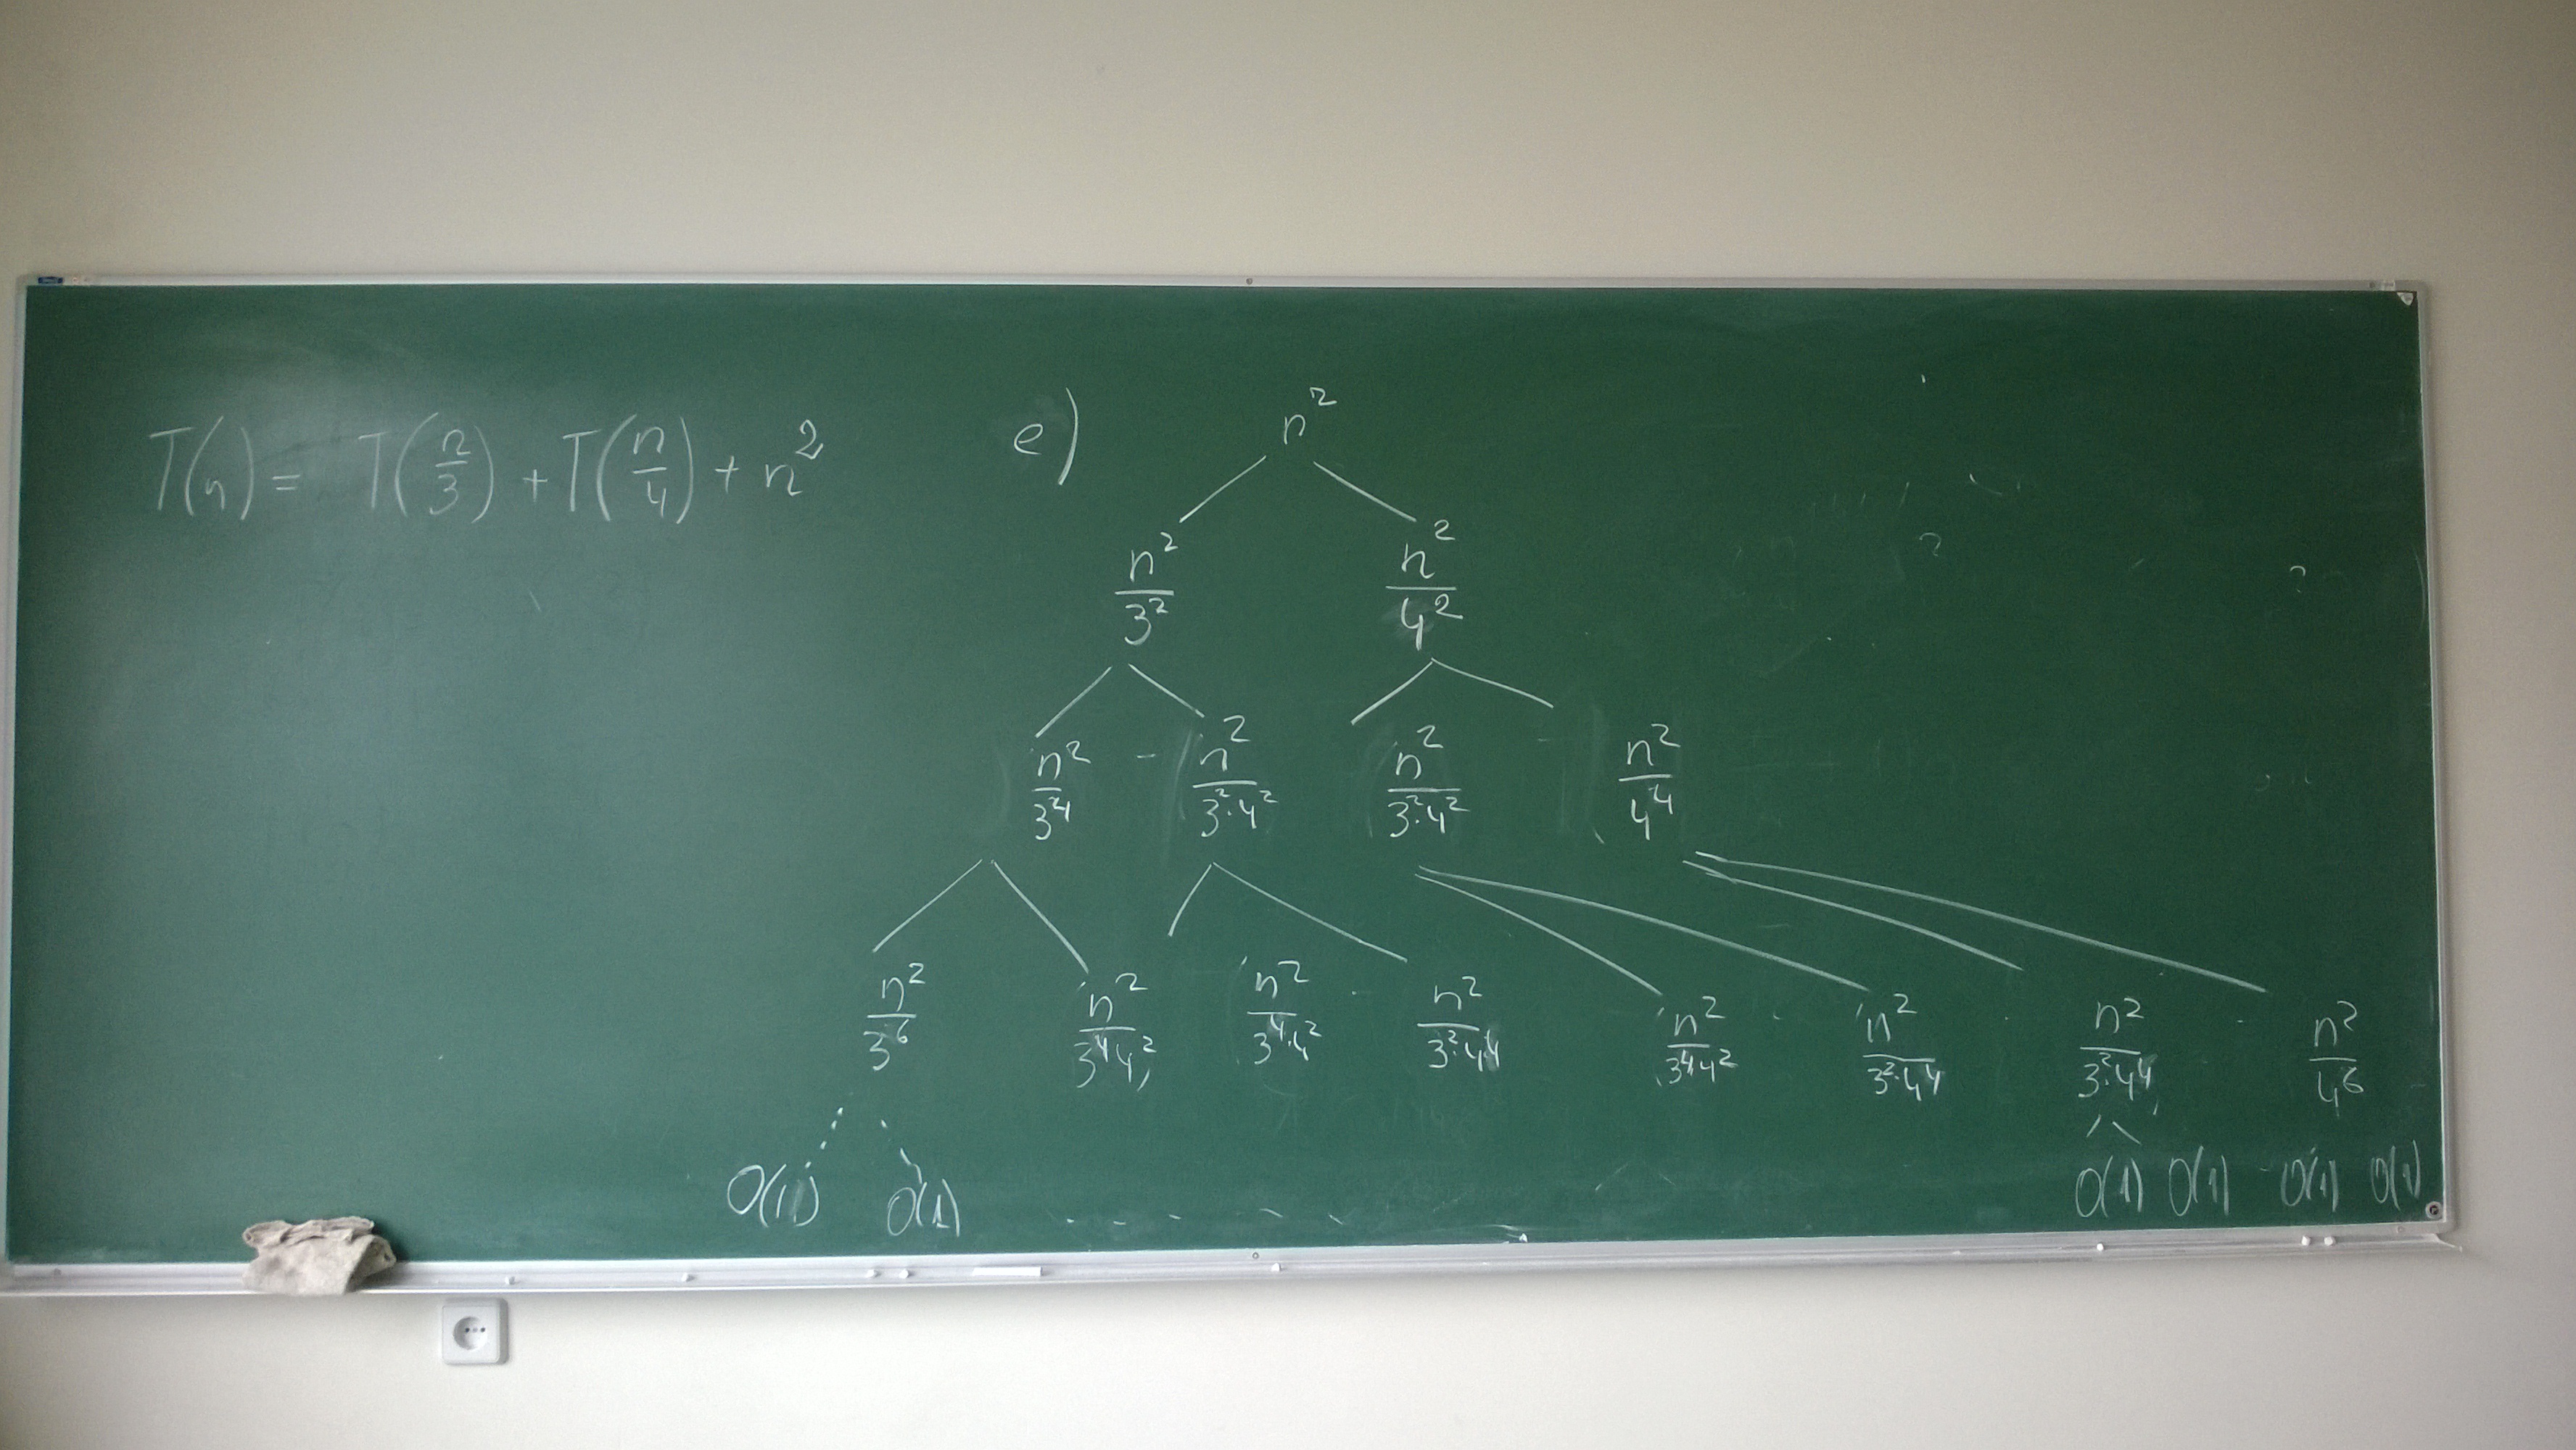 T(n) = T(n/3) + T(n/4) + n²
e)
n²
n²/3² n²/4²
n²/3⁴ n²/3²·4² n²/3²·4² n²/4⁴
n²/3⁶ n²/3⁴4² n²/3⁴·4² n²/3²·4⁴ n²/3⁴4² n²/3²·4⁴ n²/3²·4⁴ n²/4⁶
O(1) O(1) O(1) O(1) O(1) O(1)